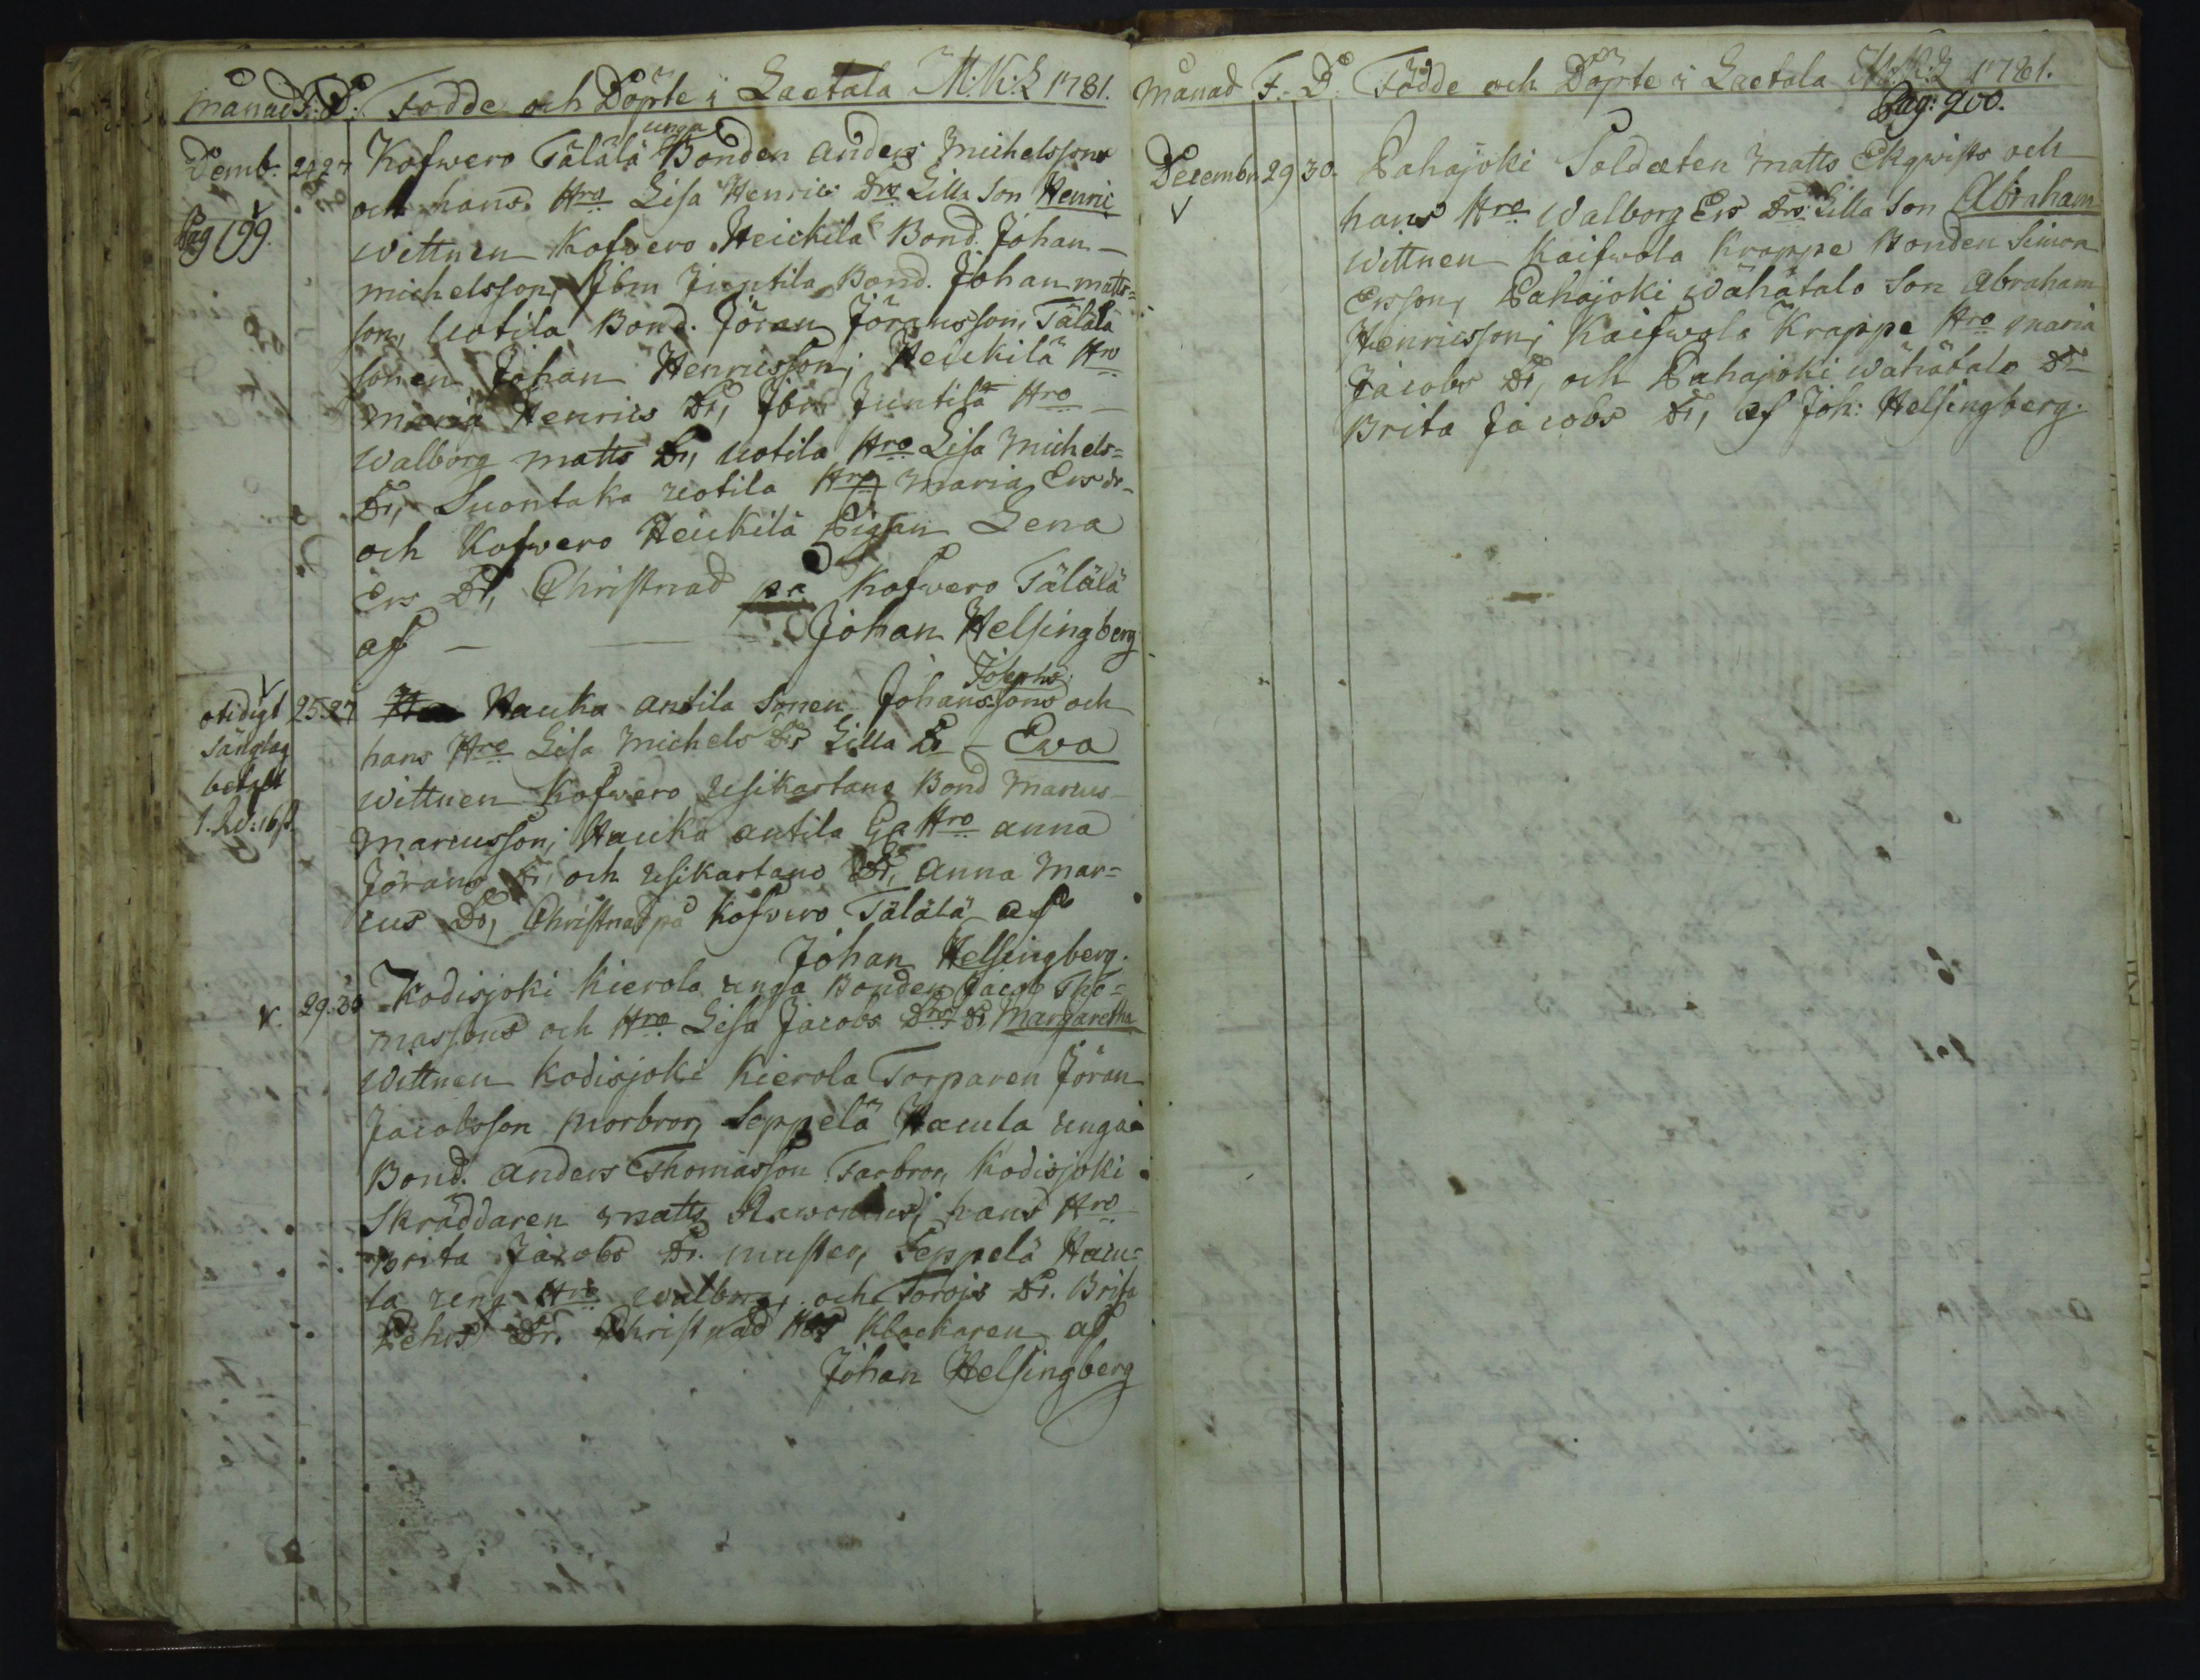 månad F: D: Födde och Döpte i Laetala M:K:S 1781.
Pag 199.
Demb. 24 27 Kofwero Tälälä unga Bonden Anders Michelssons
och hans Hro Lisa Henrics Drs Lilla Son Henric
wittnen Kofwero Heickilä Bond. Johan
michelsson, Ibm Juntila Bond. Johan matts=
son, Uotila Bond. Jöran Jöransson, Tälälä
sonen Johan Henricsson; Heickilä Hro
maria Henrics Dr, Ibm Juntila Hro
Walborg matts Dr, Uotila Hro Lisa Michels=
Dr, Suontaka Uotila Hro Maria Ers dr
och Kofwero Heickilä Pigan Lena
Ers Dr, Christnad på Kofwero Tälälä
af Johan Helsingberg
otidigt
sänglag
betalt
25. 27 Hauka antila Sonen Johans Josephs sons och
hans Hro Lisa Michels Drs Lilla Dr Ewa
wittnen Kofwero Usikartano Bond Marcus
marcusson; Hauka antila Ga Hro anna
Jörans Dr, och Usikartano Dr, anna Mar=
cus Dr, Christnad på Kofwero Tälälä af
Johan Helsingberg.
29. 30 Kodisjoki Kierola unga Bonden Jacob Tho=
massons och Hro Lisa Jacobs Drs Dr Margaretha
Wittnen Kodisjoki Kierola Torparen Jöran
Jacobsson morbror, Seppelä Haeula unga
Bond. anders Thomasson Farbror, Kodisjoki
Skräddaren matts hans Hro
Brita Jacobs Dr. muster, Seppelä Haeu=
la ung Hro walborg, och Dr. Brita
Dr. Christnad hos Klockaren af
Johan Helsingberg
månad F. D. Födde och Döpte i Laetala M:K:S 1781.
Pag: 200.
Decembr 29 30. Pahajoki Soldaten Matts Ekqwists och
hans Hro Walborg Ers Drs Lilla Son Abraham
Wittnen Kaifwola Krappe Bonden Simon
Ersson, Pahajoki wähätalo Son Abraham
Henricsson; Kaifwola Krappe Hro maria
Jacobs Dr, och Pahajoki wähätalo Dr
Brita Jacobs Dr, af Joh: Helsingberg.